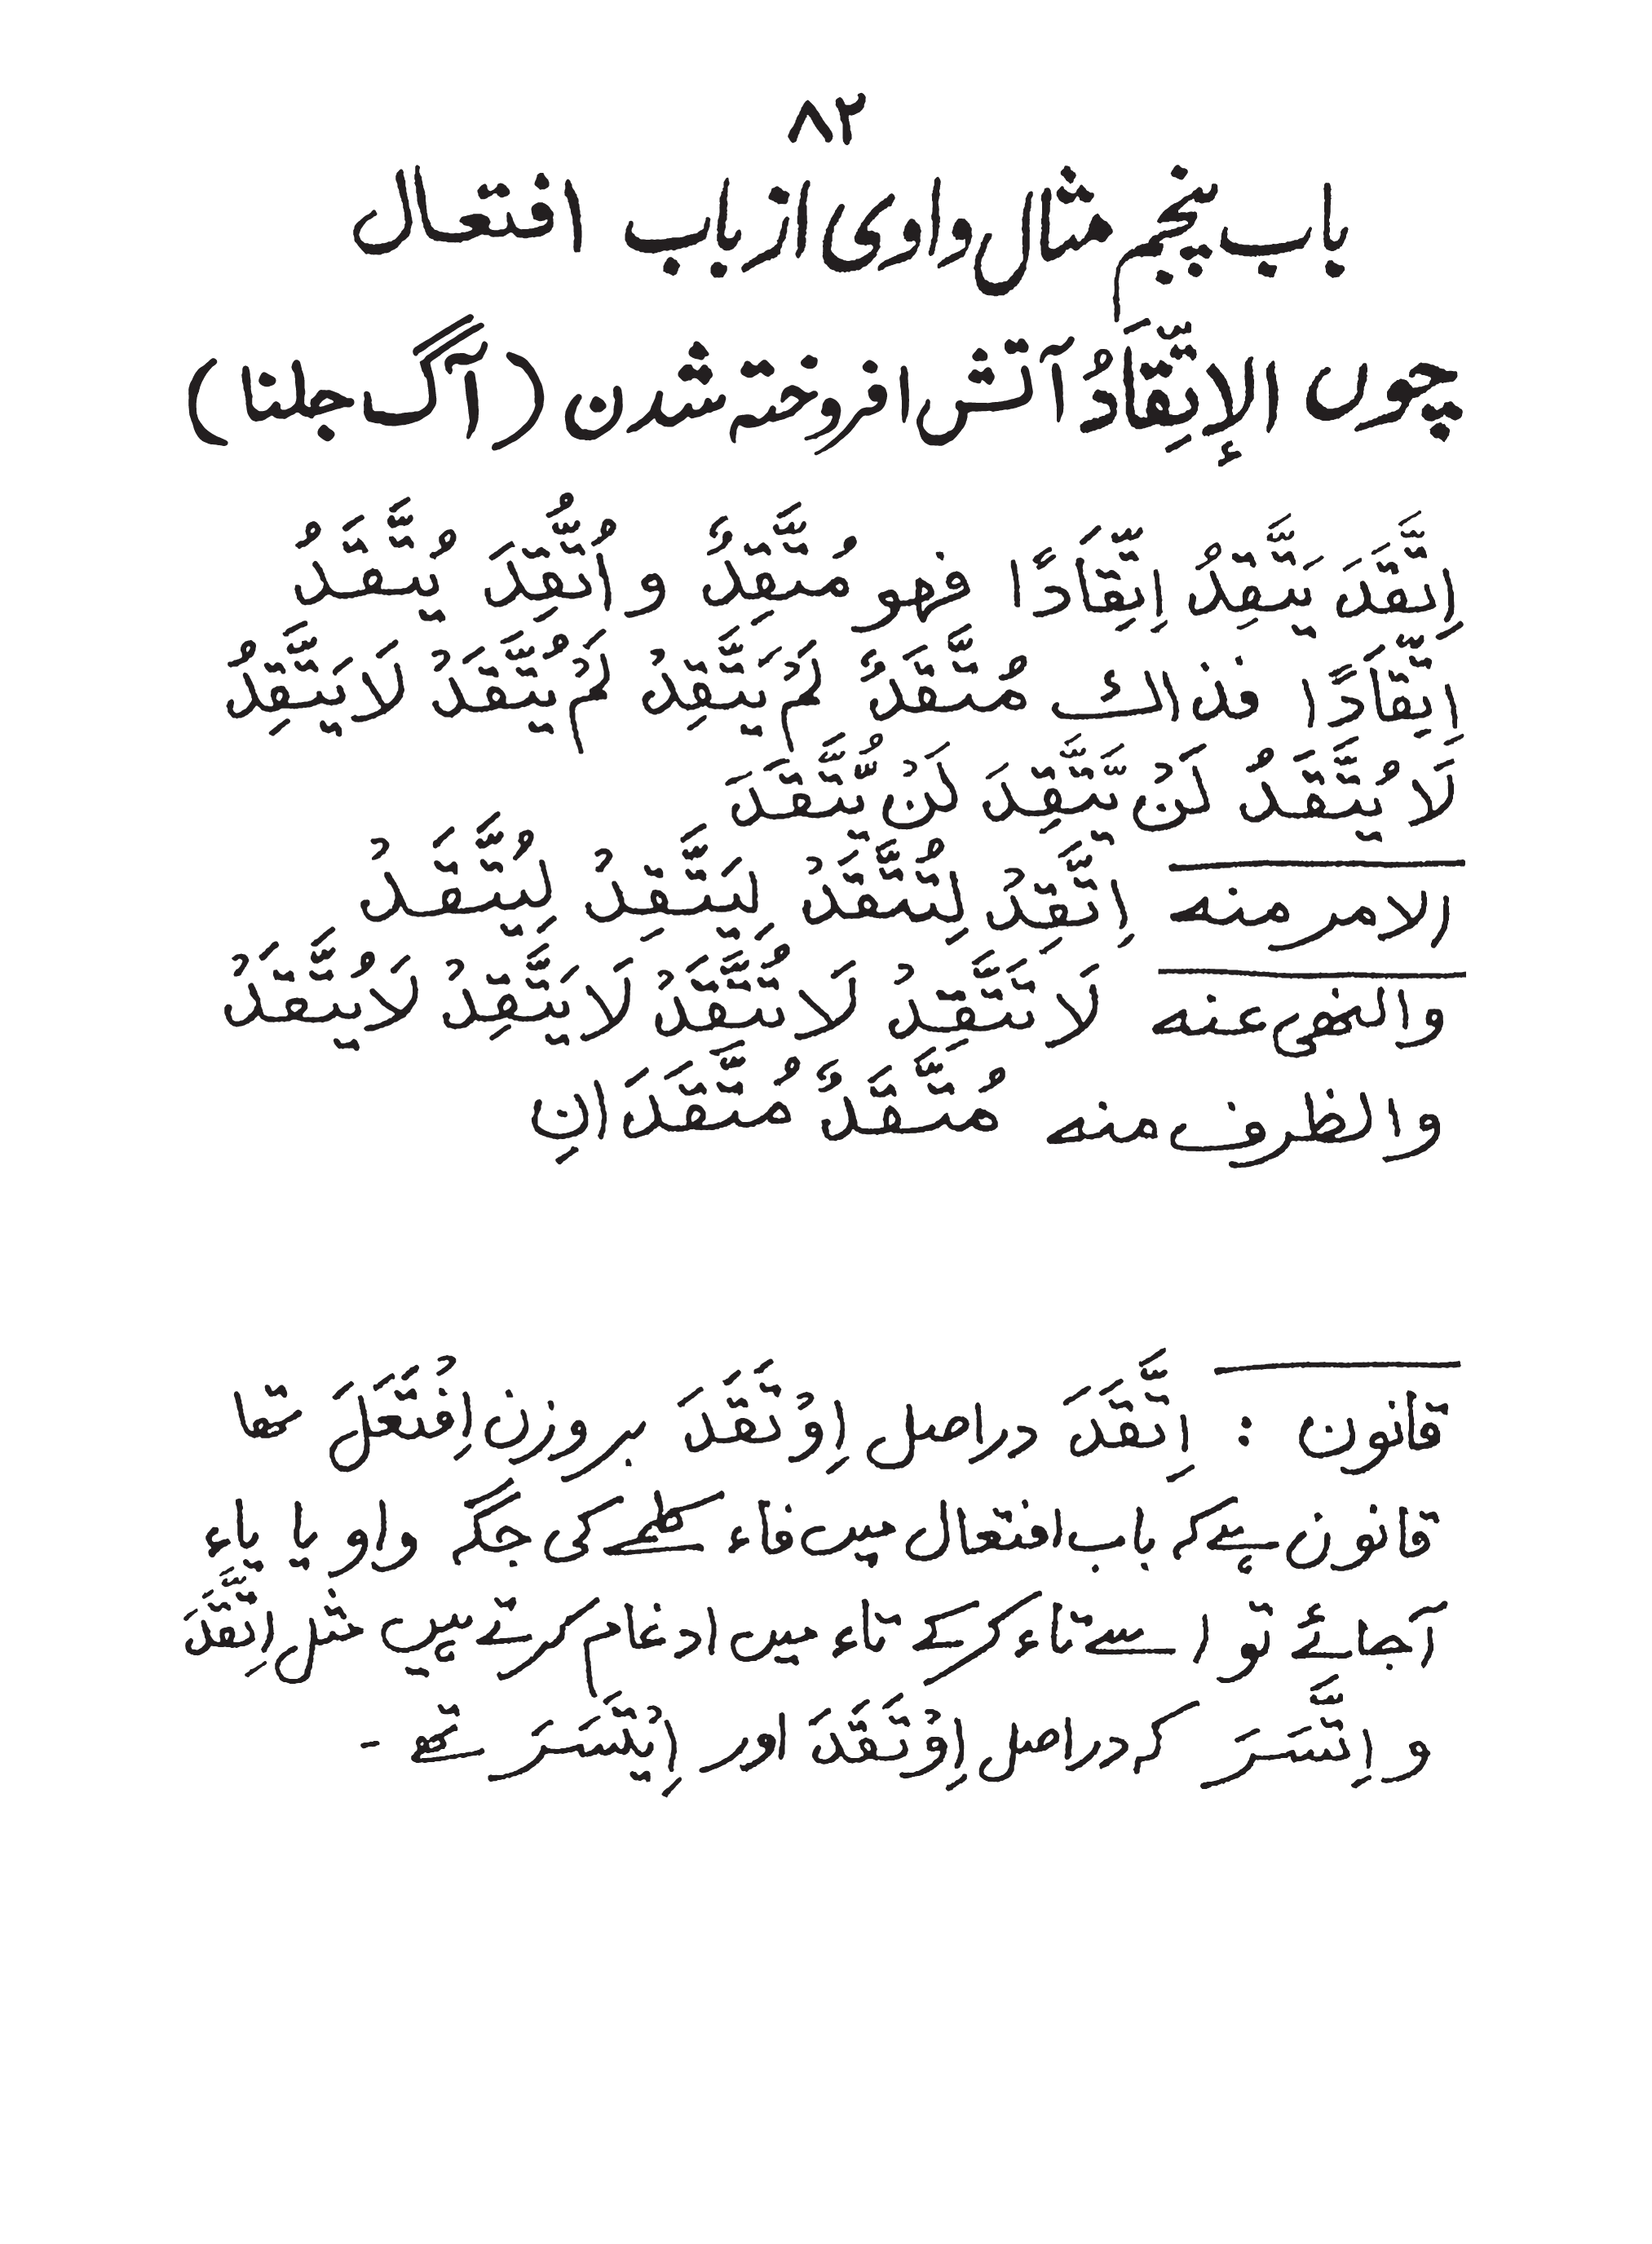 ۸۲
باب پنجم مثال واوی از باب افتعال
چوں الإتِّقَادُ آتش افروختہ شدن (آگ جلنا)
اِتَّقَدَ يَتَّقِدُ اِتِّقَادًا فهو مُتَّقِدٌ و اُتُّقِدَ يُتَّقَدُ
اِتِّقَادًا فذاك مُتَّقَدٌ لَمْ يَتَّقِدْ لَمْ يُتَّقَدْ لَا يَتَّقِدُ
لَا يُتَّقَدُ لَنْ يَّتَّقِدَ لَنْ يُّتَّقَدَ
الامر منه اِتَّقِدْ لِتُتَّقَدْ لِيَتَّقِدْ لِيُتَّقَدْ
والنهي عنه لَا تَتَّقِدْ لَا تُتَّقَدْ لَا يَتَّقِدْ لَا يُتَّقَدْ
والظرف منه مُتَّقَدٌ مُتَّقَدَانِ
قانون : اِتَّقَدَ دراصل اِوْتَقَدَ بروزن اِفْتَعَلَ تھا
قانون ہے کہ باب افتعال میں فاء کلمے کی جگہ واو یا یاء
آجائے تو اسے تاء کرکے تاء میں ادغام کرتے ہیں مثل اِتَّقَدَ
و اِتَّسَرَ کہ دراصل اِوْتَقَدَ اور اِيْتَسَرَ تھے ۔